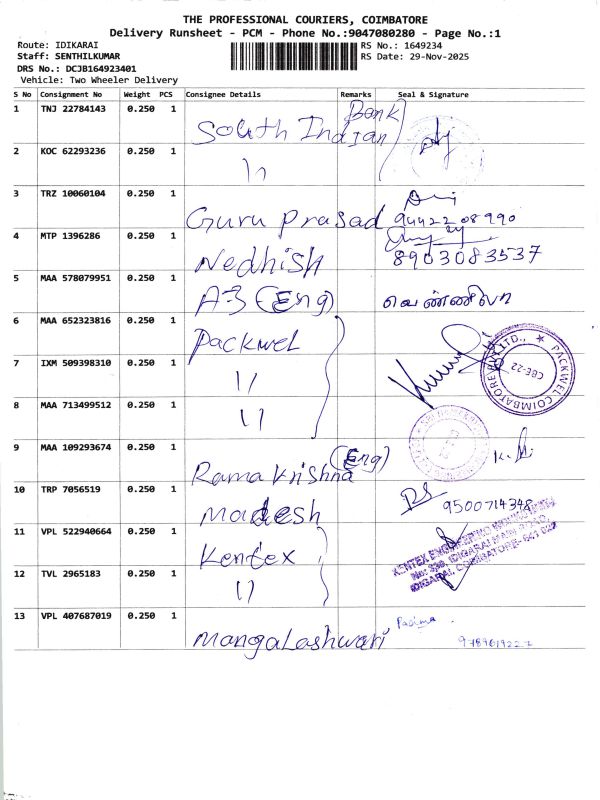 THE PROFESSIONAL COURIERS, COIMBATORE
Delivery Runsheet - PCM - Phone No.:9047080280 - Page No.:1
Route: IDIKARAI
RS No.: 1649234
Staff: SENTHILKUMAR
RS Date: 29-Nov-2025
DRS No.: DCJB164923401
Vehicle: Two Wheeler Delivery
S No Consignment No Weight PCS Consignee Details Remarks Seal & Signature
1 TNJ 22784143 0.250 1 South Indian Bank
2 KOC 62293236 0.250 1 〃
3 TRZ 10060104 0.250 1 Guru prasad 94422 08990
4 MTP 1396286 0.250 1 Nedhish 8903083537
5 MAA 578079951 0.250 1 A3 (Eng) வெண்ணிலா
6 MAA 652323816 0.250 1 Packwel
PACKWEL COIMBATORE PVT LTD., ★
CBE-22
7 IXM 509398310 0.250 1 〃
8 MAA 713499512 0.250 1 〃
9 MAA 109293674 0.250 1 Rama Krishna (Eng)
10 TRP 7056519 0.250 1 Madesh 9500714348
11 VPL 522940664 0.250 1 Kentex
KENTEX ENGINEERING
IDIGARAI MAIN ROAD
IDIGARAI, COIMBATORE- 641 022
12 TVL 2965183 0.250 1 〃
13 VPL 407687019 0.250 1 Mangalashwari Padma